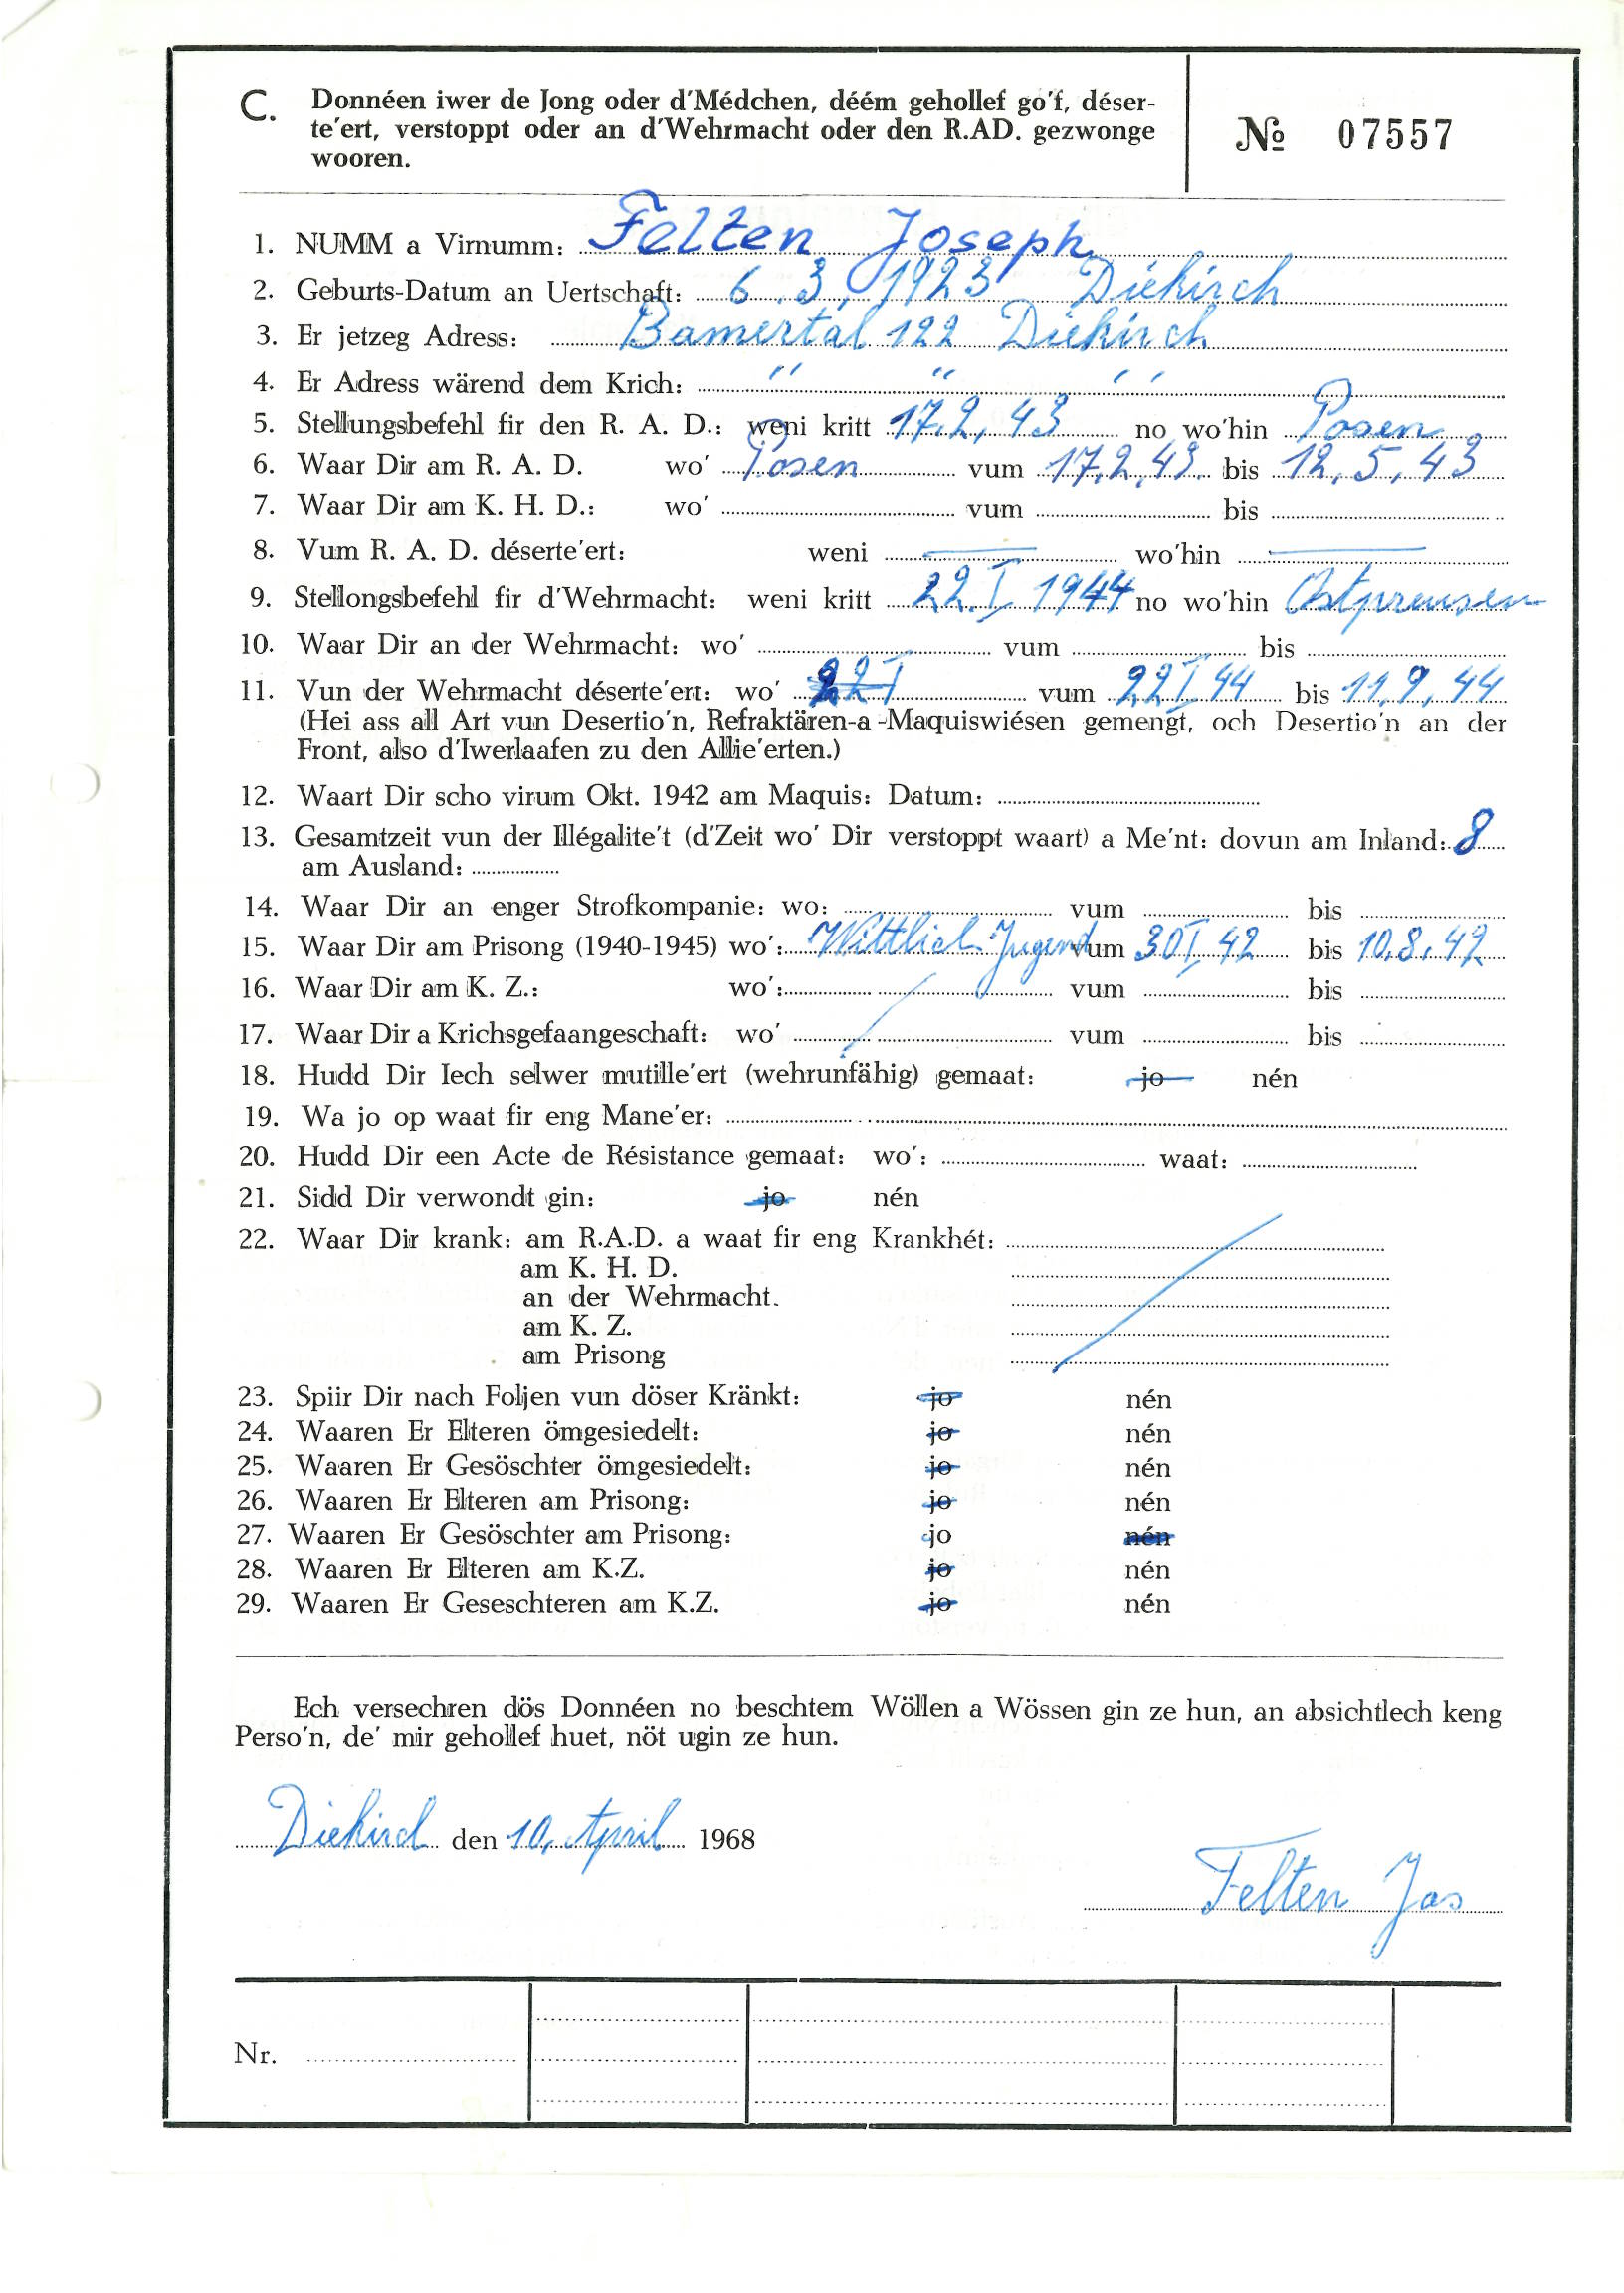 C. Donnéen iwer de Jong oder d'Médchen, déém gehollef go'f, déser-
te'ert, verstoppt oder an d'Wehrmacht oder den R.AD. gezwonge
wooren.
№ 07557
1. NUMM a Virnumm: Felten Joseph
2. Geburts-Datum an Uertschaft: 6.3.1923 Diekirch
3. Er jetzeg Adress: Bamertal 122 Diekirch
4. Er Adress wärend dem Krich: " " "
5. Stellungsbefehl fir den R. A. D.: weni kritt 17.2.43 no wo'hin Posen
6. Waar Dir am R. A. D. wo' Posen vum 17.2.43. bis 12.5.43
7. Waar Dir am K. H. D.: wo' vum bis
8. Vum R. A. D. déserte'ert: weni — wo'hin —
9. Stellongsbefehl fir d'Wehrmacht: weni kritt 22.I 1944 no wo'hin Ostpreusen
10. Waar Dir an der Wehrmacht: wo' vum bis
11. Vun der Wehrmacht déserte'ert: wo' 22 I vum 22 I 44 bis 11.9.44
(Hei ass all Art vun Desertio'n, Refraktären-a -Maquiswiésen gemengt, och Desertio'n an der
Front, also d'Iwerlaafen zu den Allie'erten.)
12. Waart Dir scho virum Okt. 1942 am Maquis: Datum:
13. Gesamtzeit vun der Illégalite't (d'Zeit wo' Dir verstoppt waart) a Me'nt: dovun am Inland: 8
am Ausland:
14. Waar Dir an enger Strofkompanie: wo: vum bis
15. Waar Dir am Prisong (1940-1945) wo': Wittlich Jugend vum 30 I 42 bis 10.8.42
16. Waar Dir am K. Z.: wo': vum bis
17. Waar Dir a Krichsgefaangeschaft: wo' vum bis
18. Hudd Dir Iech selwer mutille'ert (wehrunfähig) gemaat: jo nén
19. Wa jo op waat fir eng Mane'er:
20. Hudd Dir een Acte de Résistance gemaat: wo': waat:
21. Sidd Dir verwondt gin: jo nén
22. Waar Dir krank: am R.A.D. a waat fir eng Krankhét:
am K. H. D.
an der Wehrmacht.
am K. Z.
am Prisong
23. Spiir Dir nach Foljen vun döser Kränkt: jo nén
24. Waaren Er Elteren ömgesiedelt: jo nén
25. Waaren Er Gesöschter ömgesiedelt: jo nén
26. Waaren Er Elteren am Prisong: jo nén
27. Waaren Er Gesöschter am Prisong: jo nén
28. Waaren Er Elteren am K.Z. jo nén
29. Waaren Er Geseschteren am K.Z. jo nén
Ech versechren dös Donnéen no beschtem Wöllen a Wössen gin ze hun, an absichtlech keng
Perso'n, de' mir gehollef huet, nöt ugin ze hun.
Diekirch den 10. April 1968
Felten Jos
Nr.